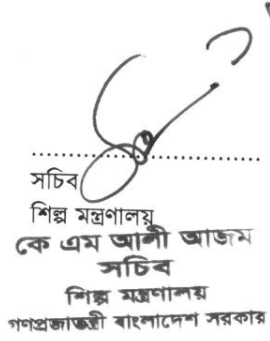 সচিব
শিল্প মন্ত্রণালয়
কে এম আলী আজম
সচিব
শিল্প মন্ত্রণালয়
গণপ্রজাতন্ত্রী বাংলাদেশ সরকার